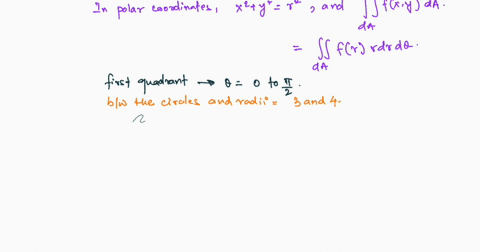 In polar coordinates, x²+y²=r², and ∬ f(x,y) dA.
dA
= ∬ f(r) r dr dθ.
dA
first quadrant → θ = 0 to π/2.
b/w the circles and radii = 3 and 4.